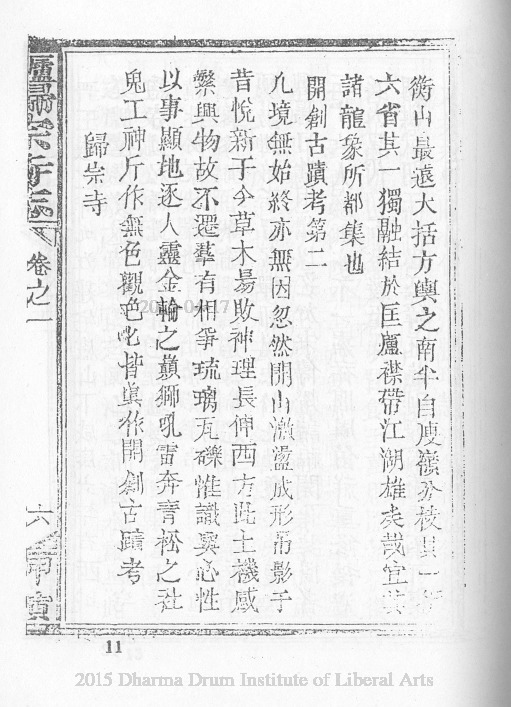 衡山最遠大括方輿之南半自庾嶺分枝其一
六省其一獨融結於匡廬襟帶江湖雄矣哉宜其
諸龍象所都集也
開創古蹟考第二
凡境無始終亦無因忽然開山激盪成形吊影于
昔悅新于今草木昜敗神理長伸西方此土機感
緊興物故不遷群有相爭琉璃瓦礫惟識與心性
以事顯地逐人靈金輪之巔獅吼雷奔青松之社
鬼工神斤作無色觀色色皆真作開創古蹟考
歸宗寺
廬歸宗寺志
卷之一
六
甲寅
2015-04-17
11
2015 Dharma Drum Institute of Liberal Arts